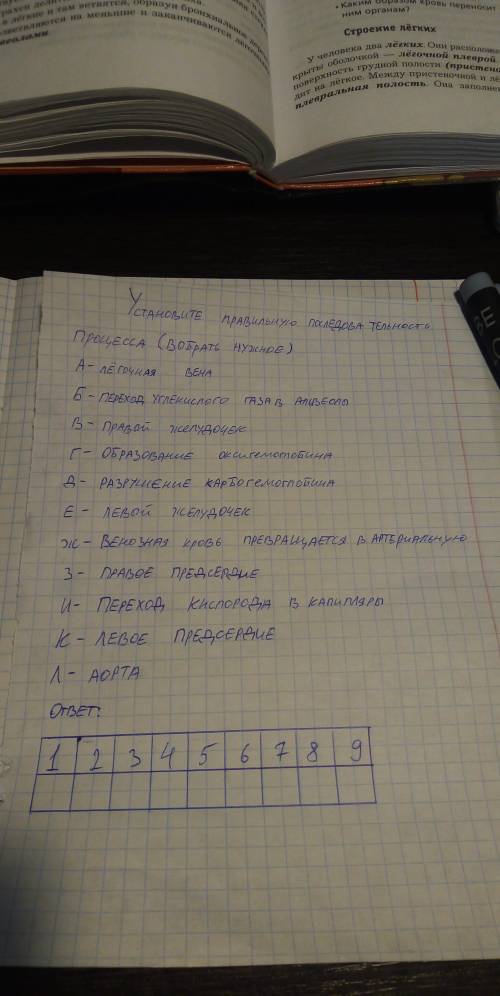 делит
и там ветвятся, образуя бронхиальное
на меньшие и заканчиваются
• Каким образом кровь переносит
ним органам?
Строение лёгких
У человека два лёгких. Они расположе
крыты оболочкой — лёгочной плеврой
поверхность грудной полости (пристено
дит на лёгкое. Между пристеночной и лё
плевральная полость. Она заполне
Установите правильную последовательность
процесса (вобрать нужное)
А - лёгочная вена
Б - переход углекислого газа в алвеолы
В - правой желудочек
Г - образование оксигемоглобина
Д - разрушение карбогемоглобина
Е - левой желудочек
Ж - Венозная кровь превращается в артериальную
З - правое предсердие
И - Переход кислорода в капилляры
К - левое предсердие
Л - аорта
Ответ:
1 2 3 4 5 6 7 8 9